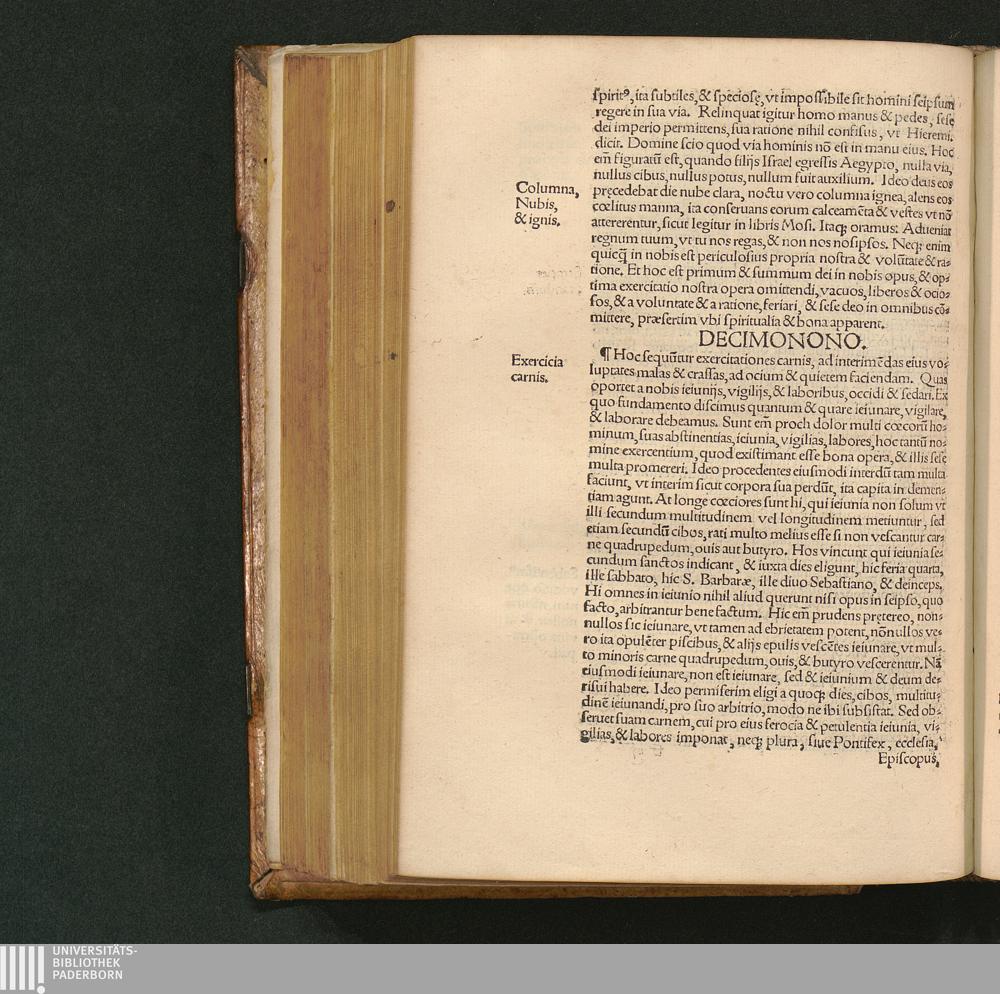 spiritꝰ, ita subtiles, & specioſę, vt impoſſibile ſit homini ſeipſum
regere in ſua via. Relinquat igitur homo manus & pedes, ſeſe
dei imperio permittens, ſua ratione nihil confiſus, vt Hieremi.
dicit. Domine ſcio quod via hominis nō eſt in manu eius. Hoc
em̄ figuratū eſt, quando filijs Iſrael egreſſis Aegypto, nulla via,
nullus cibus, nullus potus, nullum fuit auxilium. Ideo deus eos
pręcedebat die nube clara, noctu vero columna ignea, alens eos
cœlitus manna, ita conſeruans eorum calceamēta & veſtes vt nō
attererentur, ſicut legitur in libris Moſi. Itaqꝫ oramus: Adueniat
regnum tuum, vt tu nos regas, & non nos noſipſos. Neqꝫ enim
quicq̄ in nobis eſt periculoſius propria noſtra & volūtate & ra⸗
tione. Et hoc eſt primum & ſummum dei in nobis opus, & op⸗
tima exercitatio noſtra opera omittendi, vacuos, liberos & ocio⸗
ſos, & a voluntate & a ratione, feriari, & ſeſe deo in omnibus cō⸗
mittere, præſertim vbi ſpiritualia & bona apparent.
Columna,
Nubis,
& ignis.
DECIMONONO.
¶ Hoc ſequūtur exercitationes carnis, ad interimēdas eius vo⸗
luptates malas & craſſas, ad ocium & quietem faciendam. Quas
oportet a nobis ieiunijs, vigilijs, & laboribus, occidi & ſedari. Ex
quo fundamento diſcimus quantum & quare ieiunare, vigilare,
& laborare debeamus. Sunt em̄ proch dolor multi cœcorū ho⸗
minum, ſuas abſtinentias, ieiunia, vigilias, labores, hoc tantū no⸗
mine exercentium, quod exiſtimant eſſe bona opera, & illis ſeſe
multa promereri. Ideo procedentes eiuſmodi interdū tam multa
faciunt, vt interim ſicut corpora ſua perdūt, ita capita in demen⸗
tiam agunt. At longe cœciores ſunt hi, qui ieiunia non ſolum vt
illi ſecundum multitudinem vel longitudinem metiuntur, ſed
etiam ſecundū cibos, rati multo melius eſſe ſi non veſcantur car⸗
ne quadrupedum, ouis aut butyro. Hos vincunt qui ieiunia ſe⸗
cundum ſanctos indicant, & iuxta dies eligunt, hic feria quarta,
ille ſabbato, hic S. Barbaræ, ille diuo Sebaſtiano, & deinceps.
Hi omnes in ieiunio nihil aliud querunt niſi opus in ſeipſo, quo
facto, arbitrantur bene factum. Hic em̄ prudens pretereo, non⸗
nullos ſic ieiunare, vt tamen ad ebrietatem potent, nōnullos ve⸗
ro ita opulēter piſcibus, & alijs epulis veſcētes ieiunare, vt mul⸗
to minoris carne quadrupedum, ouis, & butyro veſcerentur. Nā
eiuſmodi ieiunare, non eſt ieiunare, ſed & ieiunium & deum de⸗
riſui habere. Ideo permiſerim eligi a quoqꝫ dies, cibos, multitu⸗
dinē ieiunandi, pro ſuo arbitrio, modo ne ibi ſubſiſtat. Sed ob⸗
ſeruet ſuam carnem, cui pro eius ferocia & petulentia ieiunia, vi⸗
gilias, & labores imponat, neqꝫ plura, ſiue Pontifex, eccleſia,
Epiſcopus,
Exercicia
carnis.
UNIVERSITÄTS-
BIBLIOTHEK
PADERBORN